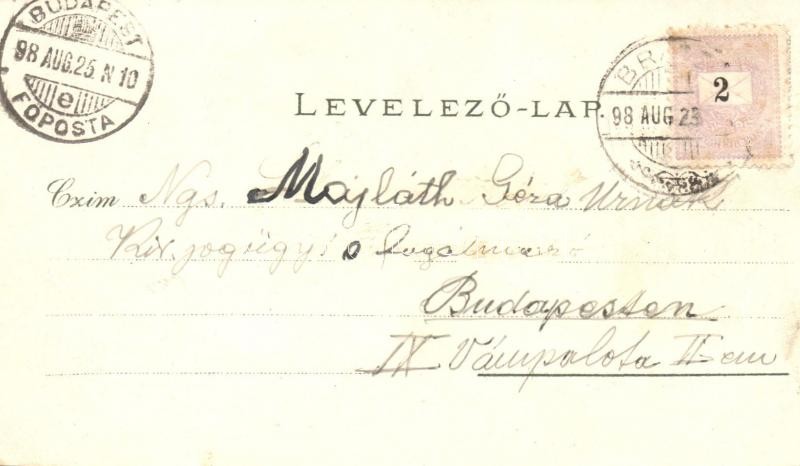 BUDAPEST
98 AUG. 25. N 10
e
FŐPOSTA
LEVELEZŐ-LAP.
2
98 AUG 25
Czim Ngs. Majláth Géza Urnak
Kir. jogügyi fogalmazó
Budapesten
IX Vámpalota II em